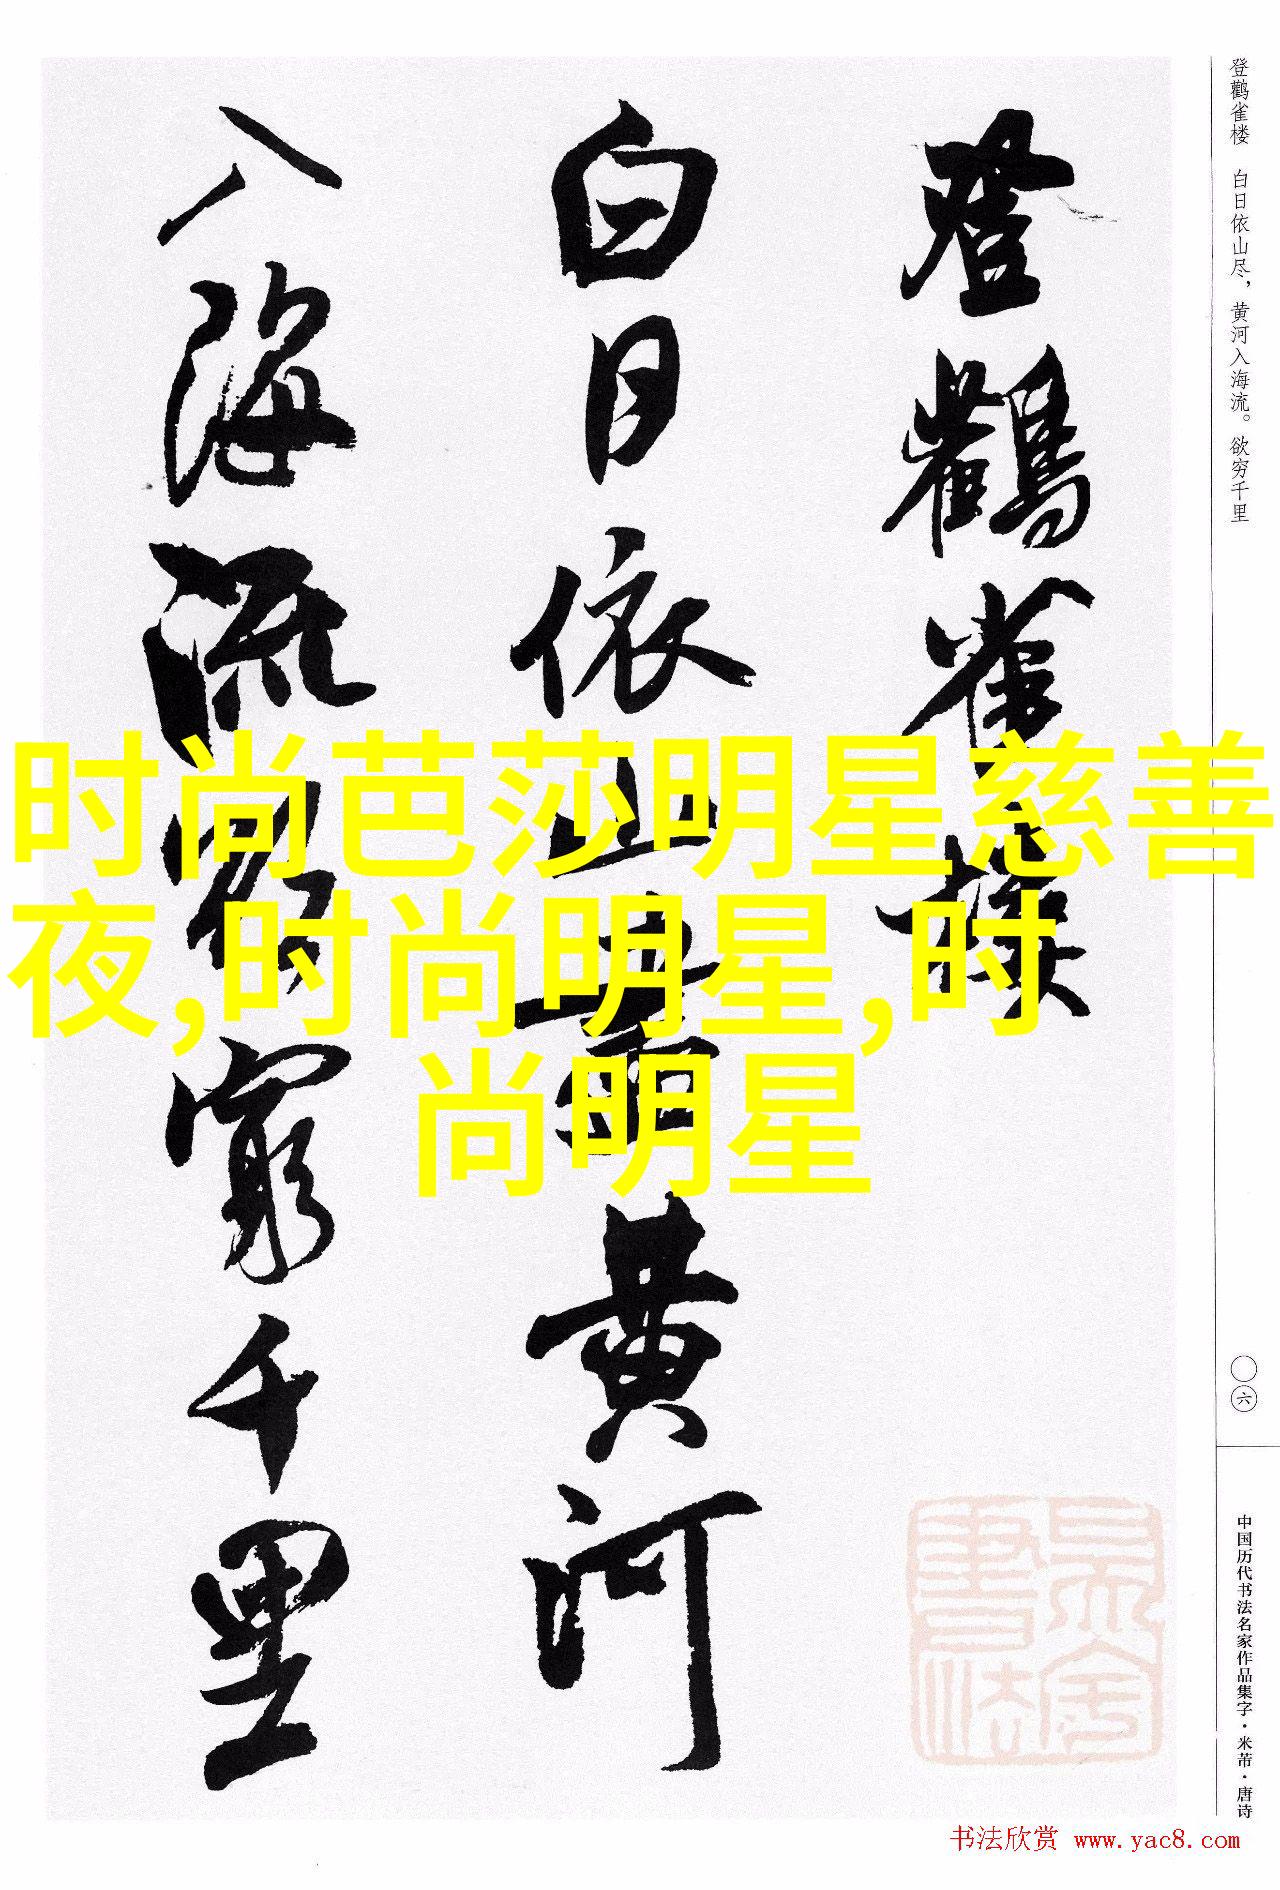 登鹳雀楼 白日依山尽，黄河入海流。欲穷千里
登鸛雀楼
白日依山盡黄河
入海流欲窮千里
时尚芭莎明星慈善
夜,时尚明星,时
尚明星
〇六
中国历代书法名家作品集字·米芾·唐诗
书法欣赏 www.yac8.com